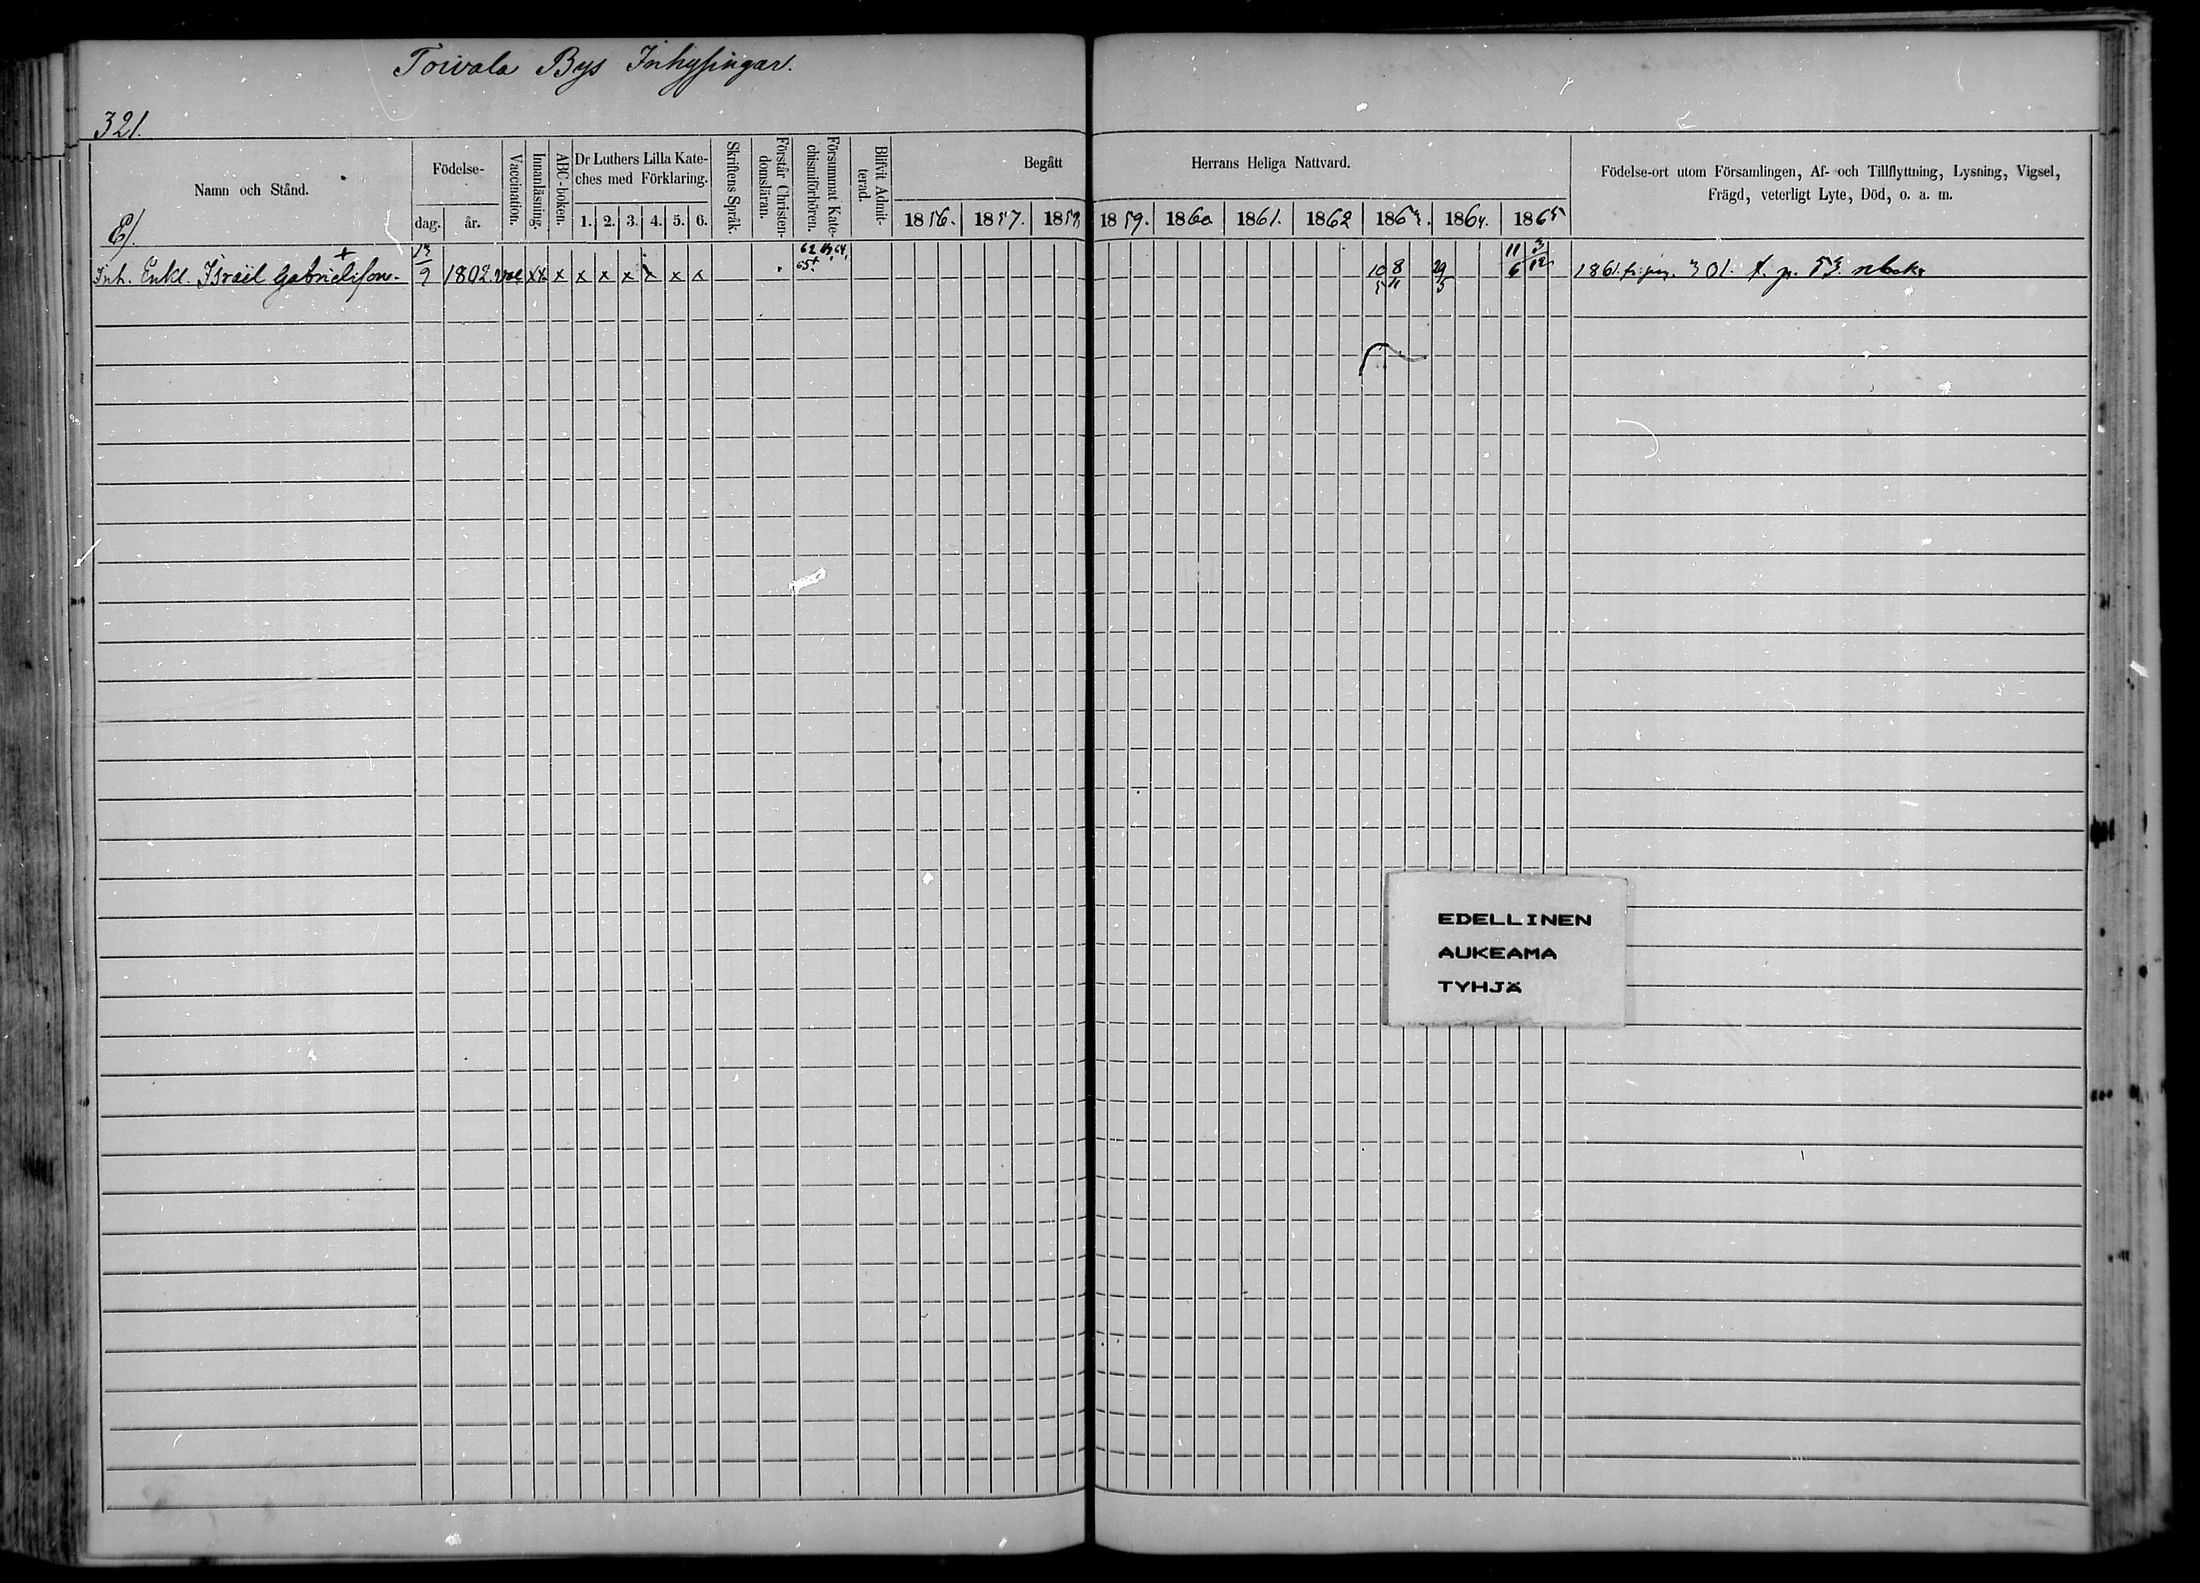 Toivala Bys Inhysingar.
321.
Namn och Stånd.
Födelse-
dag. år.
Vaccination.
Innanläsning.
ABC-boken.
Dr Luthers Lilla Kate-
ches med Förklaring.
1. 2. 3. 4. 5. 6.
Skriftens Språk.
Förstår Christen-
domsläran.
Försummat Kate-
chismiförhören.
Blifvit Admit-
terad.
Begått Herrans Heliga Nattvard.
1856. 1857. 1858 1859. 1860 1861. 1862 1863. 1864. 1865
Födelse-ort utom Församlingen, Af- och Tillflyttning, Lysning, Vigsel,
Frägd, veterligt Lyte, Död, o. a. m.
E).
62 63 64,
65+
Inh. Enkl. Israël Gabrielsson 13/9 1802. vac xx x x x x x x x 10/5 8/11 29/5 11/6 3/12 1861. fr. pag. 301. t. p. 53. nboks
EDELLINEN
AUKEAMA
TYHJÄ